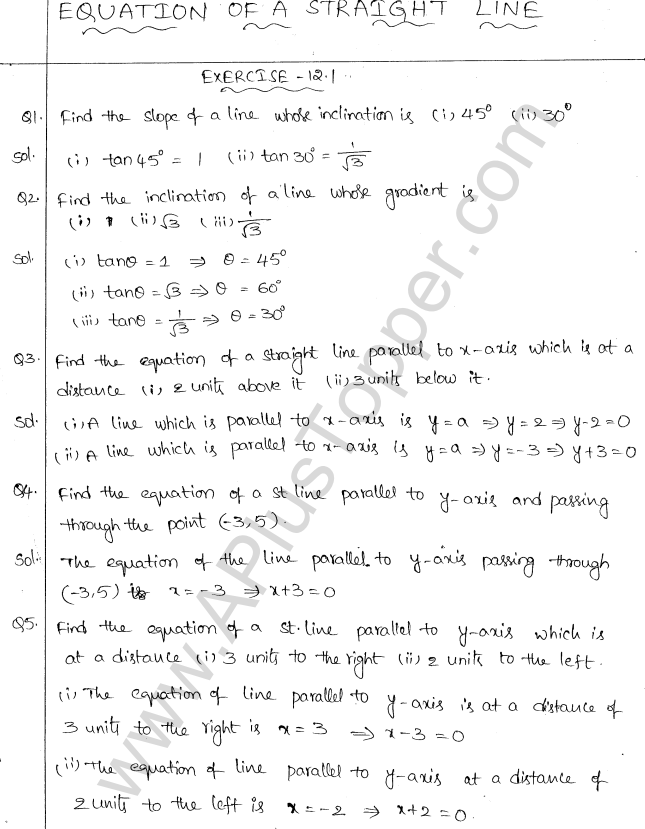 EQUATION OF A STRAIGHT LINE
EXERCISE - 12.1
Q1. Find the slope of a line whose inclination is (i) 45° (ii) 30°
Sol. (i) tan45° = 1 (ii) tan30° = 1/√3
Q2. Find the inclination of a line whose gradient is
(i) 1 (ii) √3 (iii) 1/√3
Sol. (i) tanθ = 1 ⇒ θ = 45°
(ii) tanθ = √3 ⇒ θ = 60°
(iii) tanθ = 1/√3 ⇒ θ = 30°
Q3. Find the equation of a straight line parallel to x-axis which is at a
distance (i) 2 units above it (ii) 3 units below it.
Sol. (i) A line which is parallel to x-axis is y = a ⇒ y = 2 ⇒ y-2 = 0
(ii) A line which is parallel to x-axis is y = a ⇒ y = -3 ⇒ y+3 = 0
Q4. Find the equation of a st line parallel to y-axis and passing
through the point (-3,5).
Sol: The equation of the line parallel to y-axis passing through
(-3,5) is x = -3 ⇒ x+3 = 0
Q5. Find the equation of a st. line parallel to y-axis which is
at a distance (i) 3 units to the right (ii) 2 units to the left.
(i) The equation of line parallel to y-axis is at a distance of
3 units to the right is x = 3 ⇒ x-3 = 0
(ii) The equation of line parallel to y-axis at a distance of
2 units to the left is x = -2 ⇒ x+2 = 0.
www.APlusTopper.com